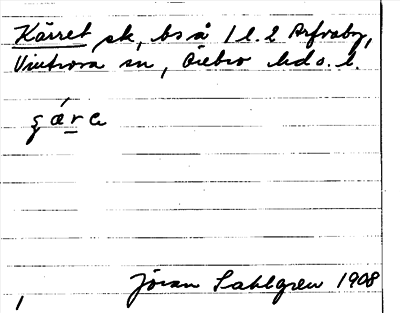 Kärret sk, bs å 1 l. 2 Arfvaby,
Vintrosa sn, Örebro hd o. l.
Jöran Sahlgren 1908
1